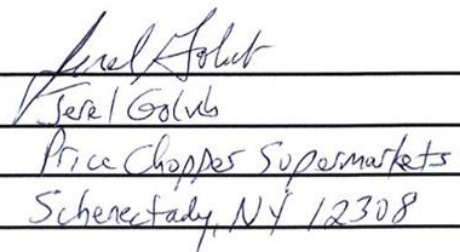 Jerel Golub
Jerel Golub
Price Chopper Supermarkets
Schenectady, NY 12308